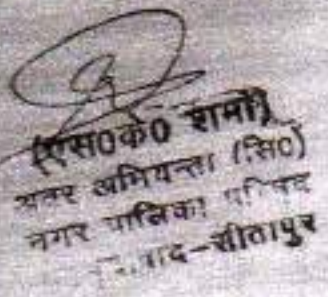 (एस0के0 शर्मा)
अवर अभियन्ता (सि0)
नगर पालिका परिषद
-सीतापुर